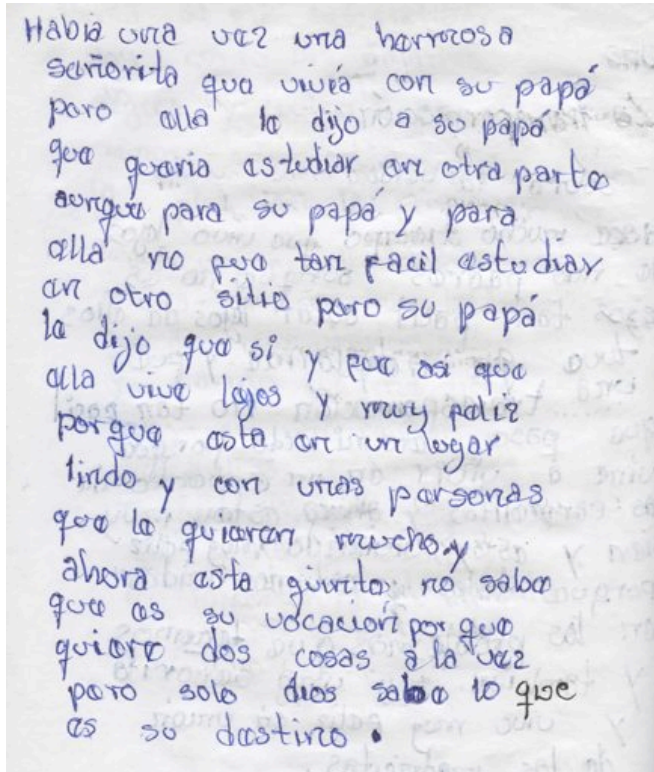 Habia una vez una hermosa
señorita que vivía con su papá
pero ella le dijo a su papá
que queria estudiar en otra parte
aunque para su papá y para
ella no fue tan facil estudiar
en otro sitio pero su papá
le dijo que si y fue asi que
ella vive lejos y muy feliz
porque esta en un lugar
lindo y con unas personas
que la quieren mucho y
ahora esta no sabe
que es su vocación porque
quiere dos cosas a la vez
pero solo dios sabe lo que
es su destino.